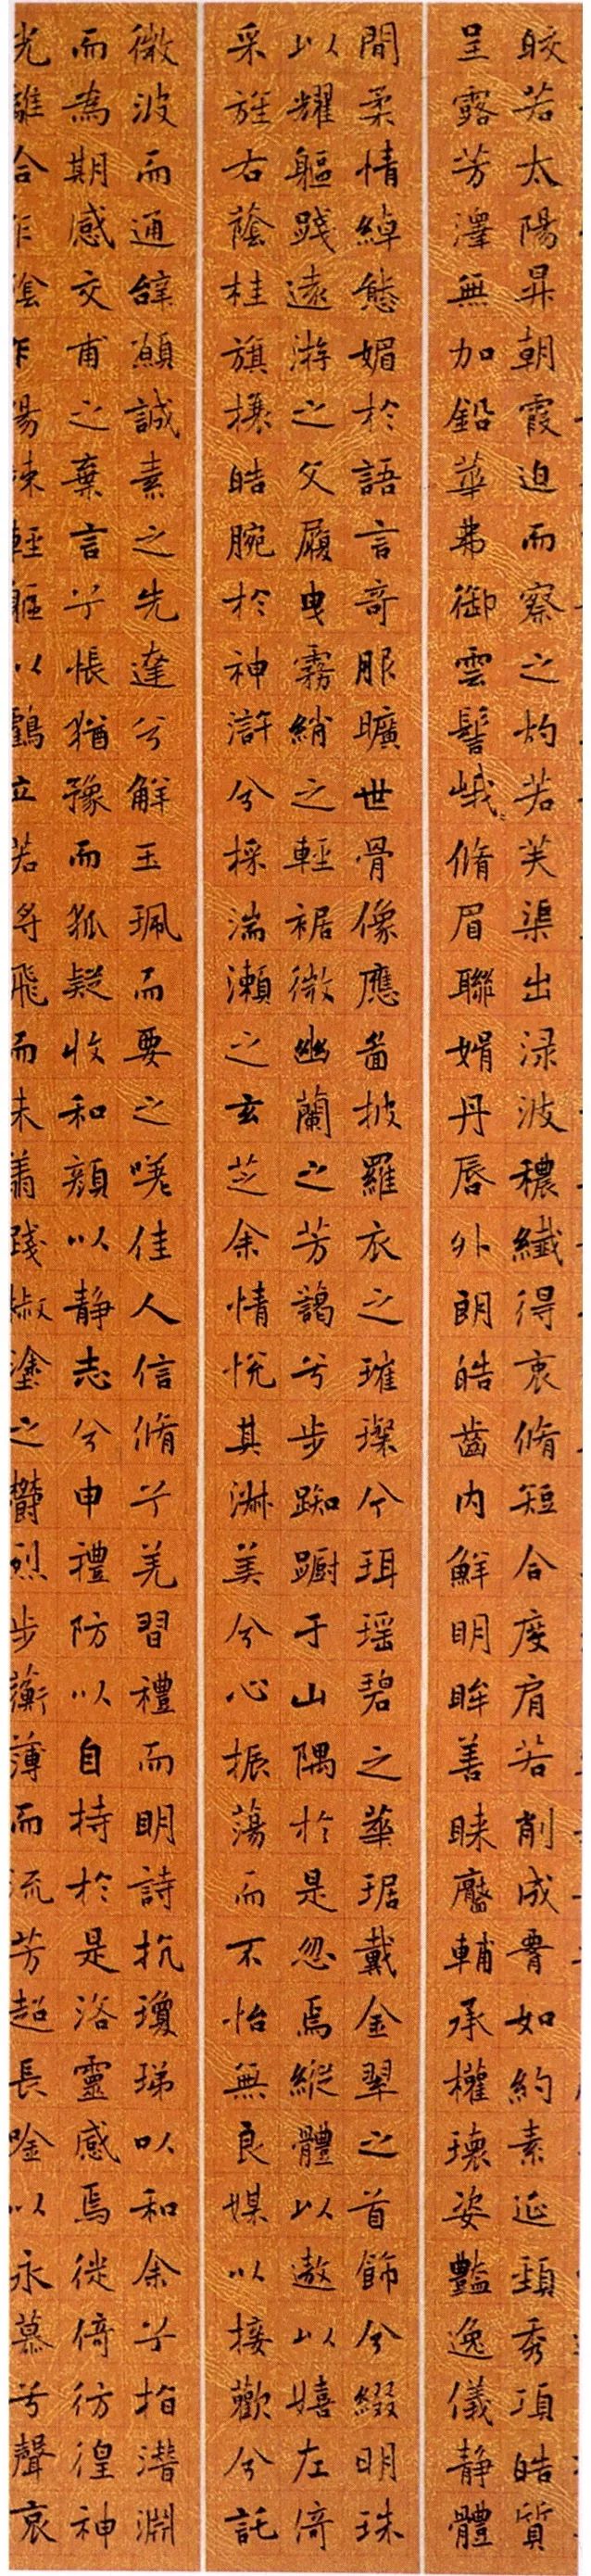 皎若太陽昇朝霞迫而察之灼若芙渠出渌波穠纖得衷脩短合度肩若削成𦝫如約素延頸秀項皓質
呈露芳澤無加鉛華弗御雲髻峨脩眉聯娟丹唇外朗皓齒內鮮明眸善睞靨輔承權瓌姿豔逸儀静體
閒柔情綽態媚於語言奇服曠世骨像應啚披羅衣之璀璨兮珥瑶碧之華琚戴金翠之首飾兮綴明珠
以耀軀踐遠游之文履曳霧綃之輕裾微幽蘭之芳藹兮步踟躕于山隅於是忽焉縱體以遨以嬉左倚
采旄右蔭桂旗攘皓腕於神滸兮採湍瀨之玄芝余情悅其淋美兮心振蕩而不怡無良媒以接歡兮託
微波而通辝願誠素之先達兮解玉珮而要之嗟佳人信脩兮羌習禮而明詩抗瓊珶以和余兮指潛淵
而為期感交甫之棄言兮悵猶豫而狐疑收和顏以静志兮申禮防以自持於是洛靈感焉徙倚彷徨神
光離合乍陰乍陽竦輕軀以鶴立若将飛而未翥踐椒塗之欝烈步蘅薄而流芳超長唫以永慕兮聲哀